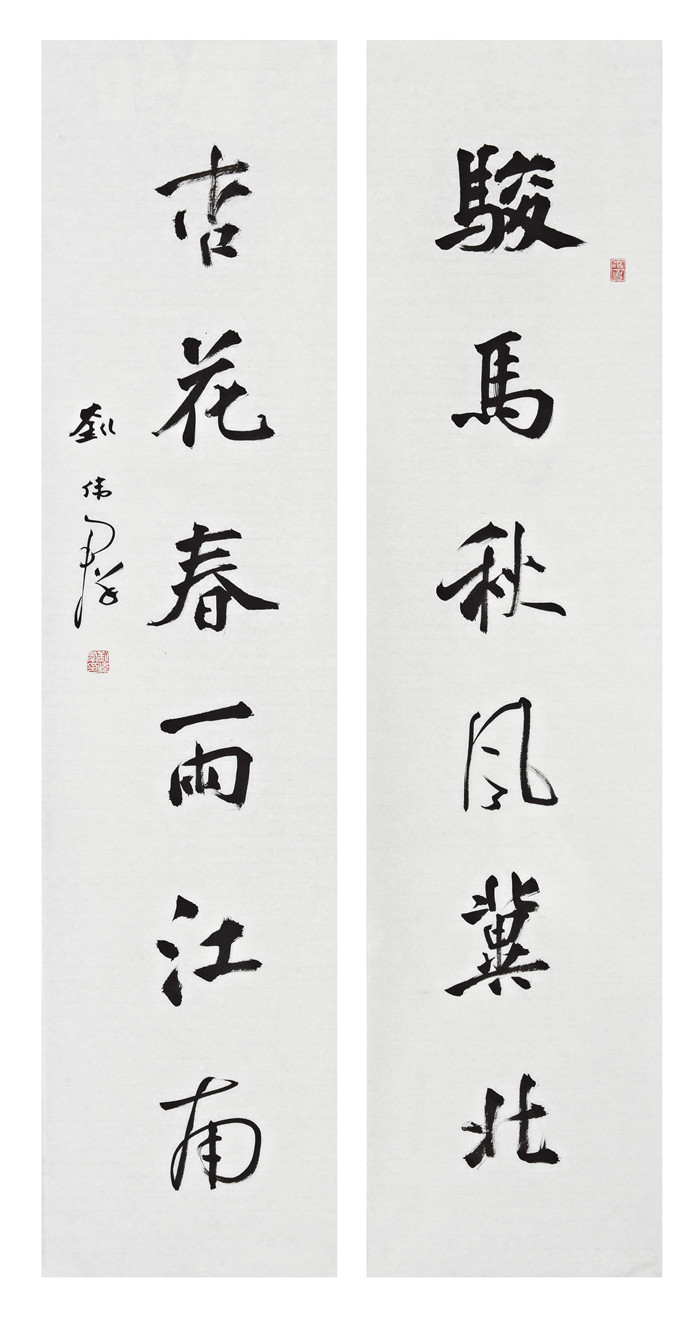 駿馬秋风冀北
杏花春雨江南
劉伟